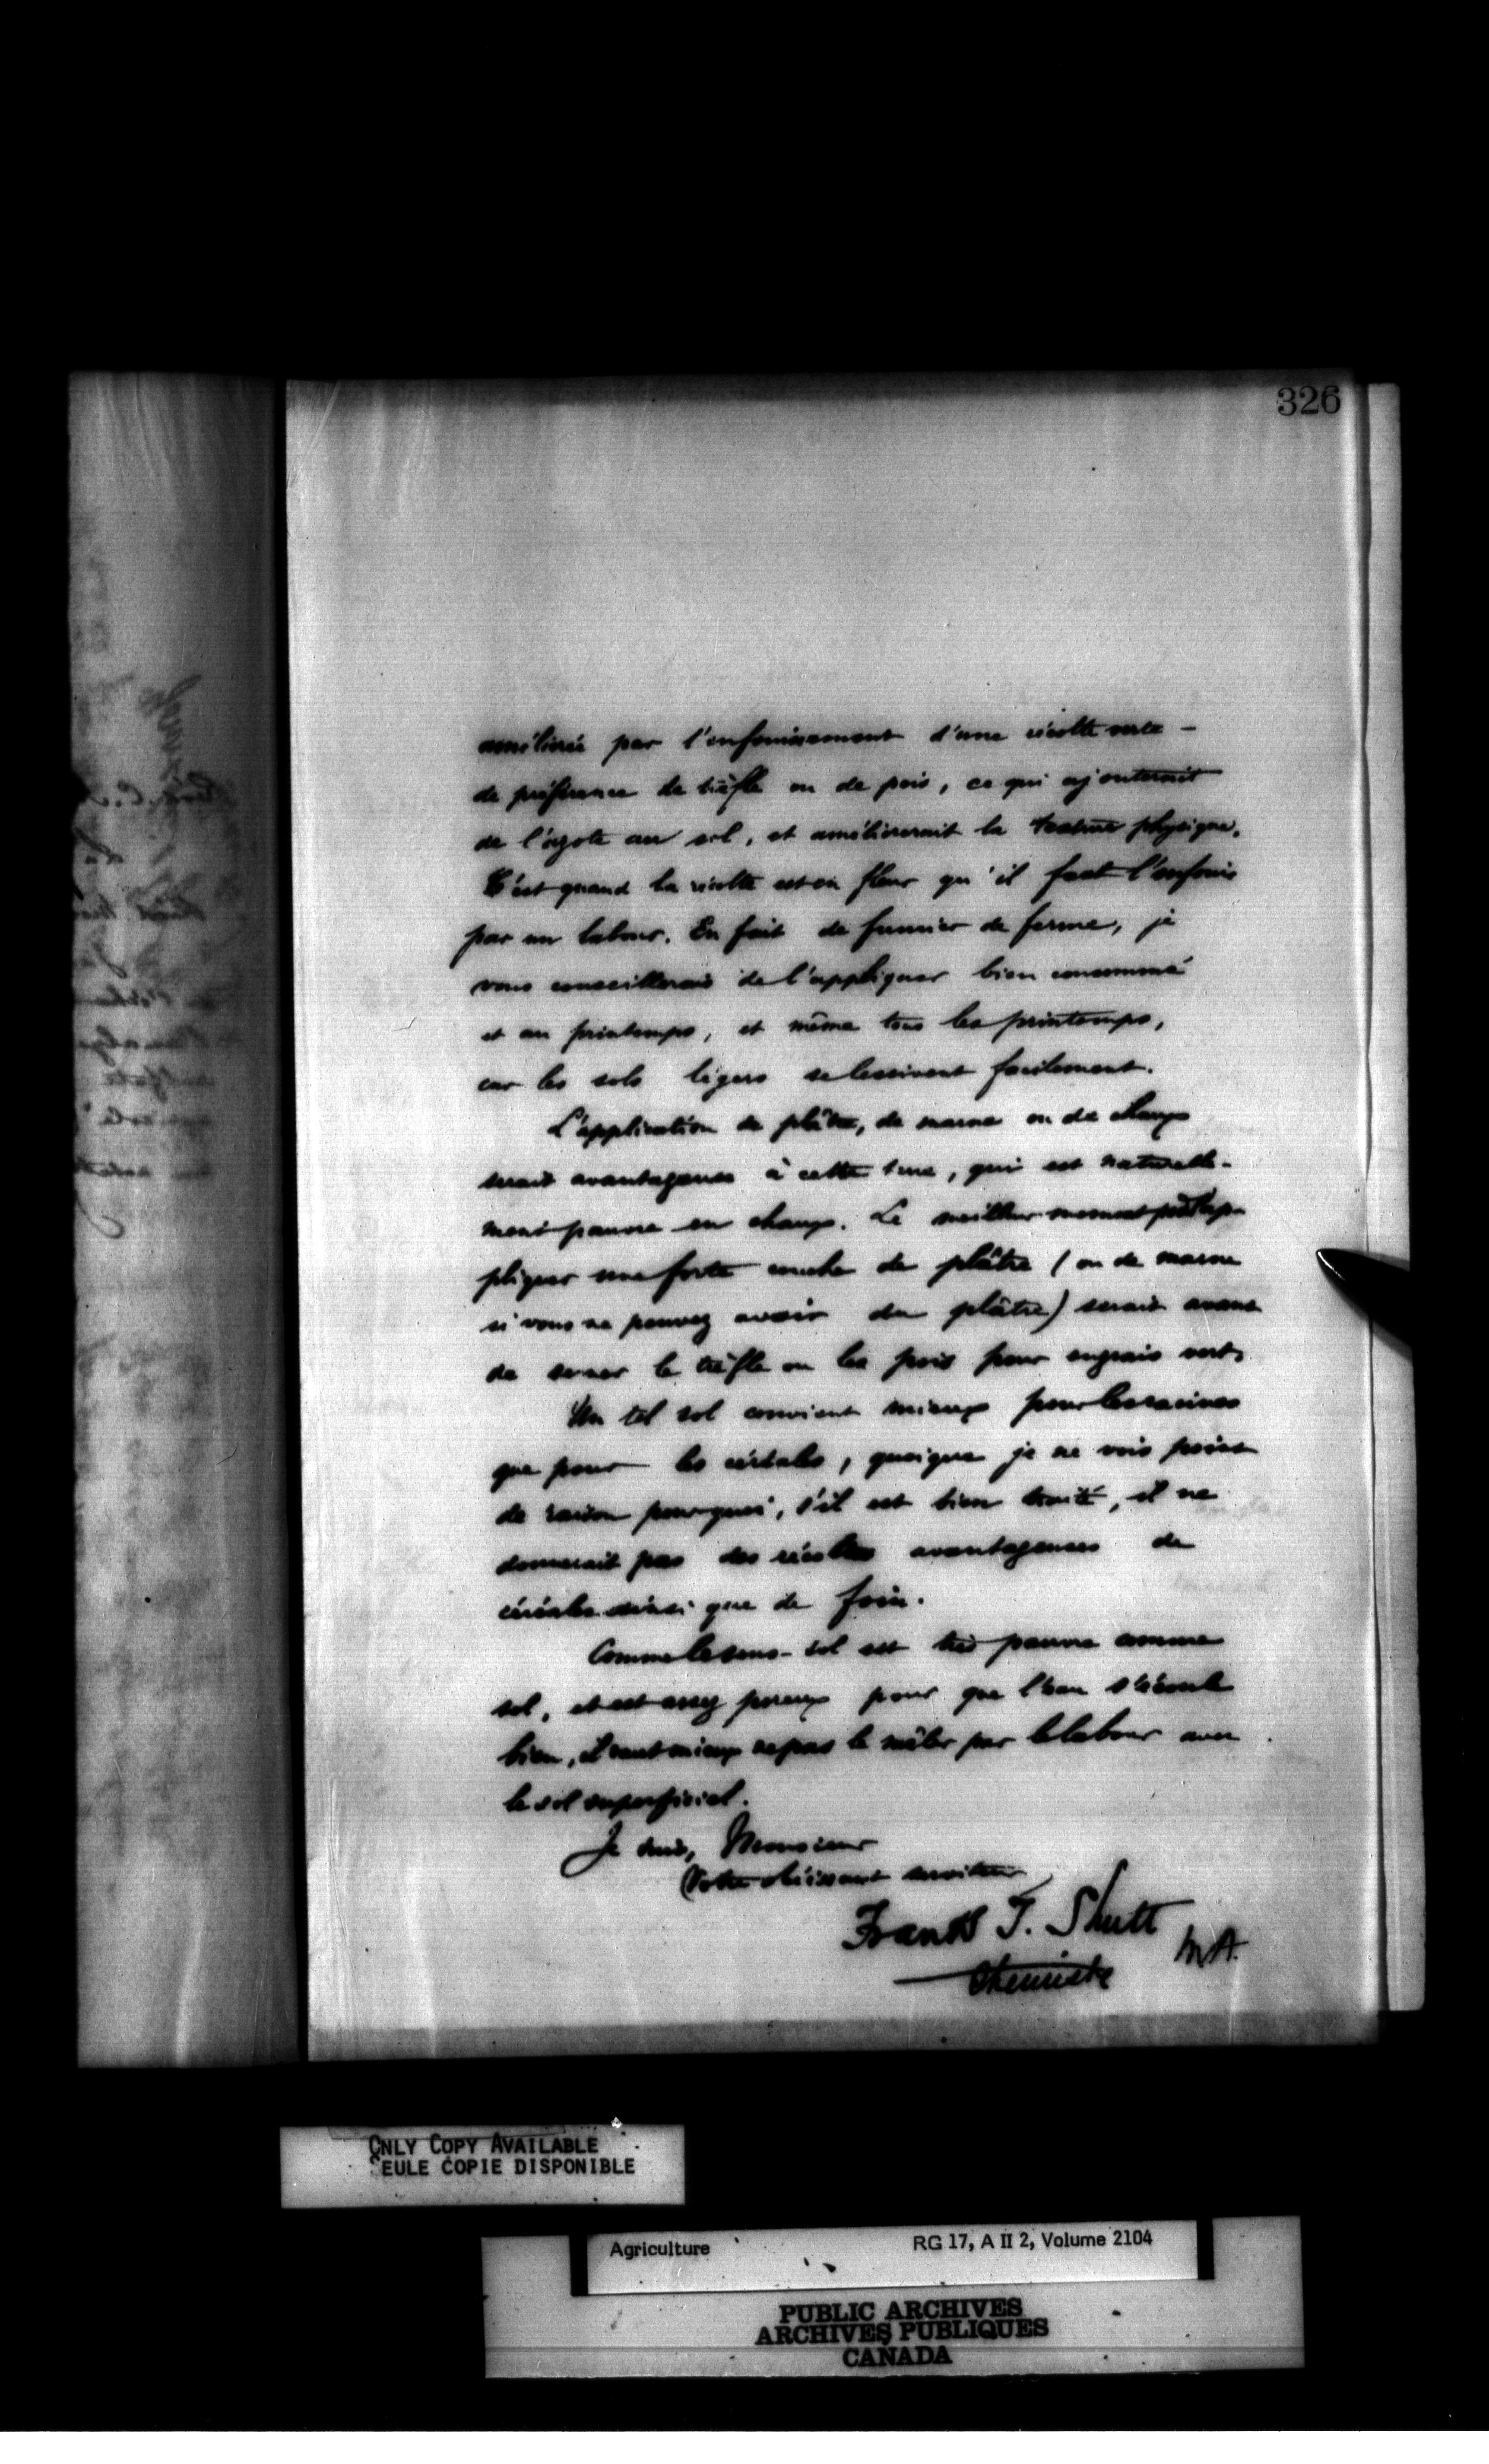 326
améliorée par l'enfouissement d'une récolte verte -
de préférence de trèfle ou de pois, ce qui ajouterait
de l'azote au sol, et améliorerait la texture physique.
C'est quand la récolte est en fleur qu'il faut l'enfouir
par un labour. En fait de fumier de ferme, je
vous conseillerais de l'appliquer bien consommé
et au printemps, et même tous les printemps,
car les sols légers se lessivent facilement.
L'application de plâtre, de marne ou de chaux
serait avantageuse à cette terre, qui est naturelle-
ment pauvre en chaux. Le meilleur moment pour l'ap-
pliquer une forte couche de plâtre (ou de marne
si vous ne pouvez avoir du plâtre) serait avant
de semer le trèfle ou les pois pour engrais vert.
Un tel sol convient mieux pour les racines
que pour les céréales, quoique je ne vois point
de raison pourquoi, s'il est bien traité, il ne
donnerait pas des récoltes avantageuses de
céréales ainsi que de foin.
Comme le sous-sol est très pauvre comme
sol, et est assez poreux pour que l'eau s'écoule
bien, il vaut mieux ne pas le mêler par le labour avec
le sol superficiel.
Je suis, Monsieur
Votre obéissant serviteur
Frank T. Shutt
M.A.
Chemiste
ONLY COPY AVAILABLE
SEULE COPIE DISPONIBLE
Agriculture RG 17, A II 2, Volume 2104
PUBLIC ARCHIVES
ARCHIVES PUBLIQUES
CANADA